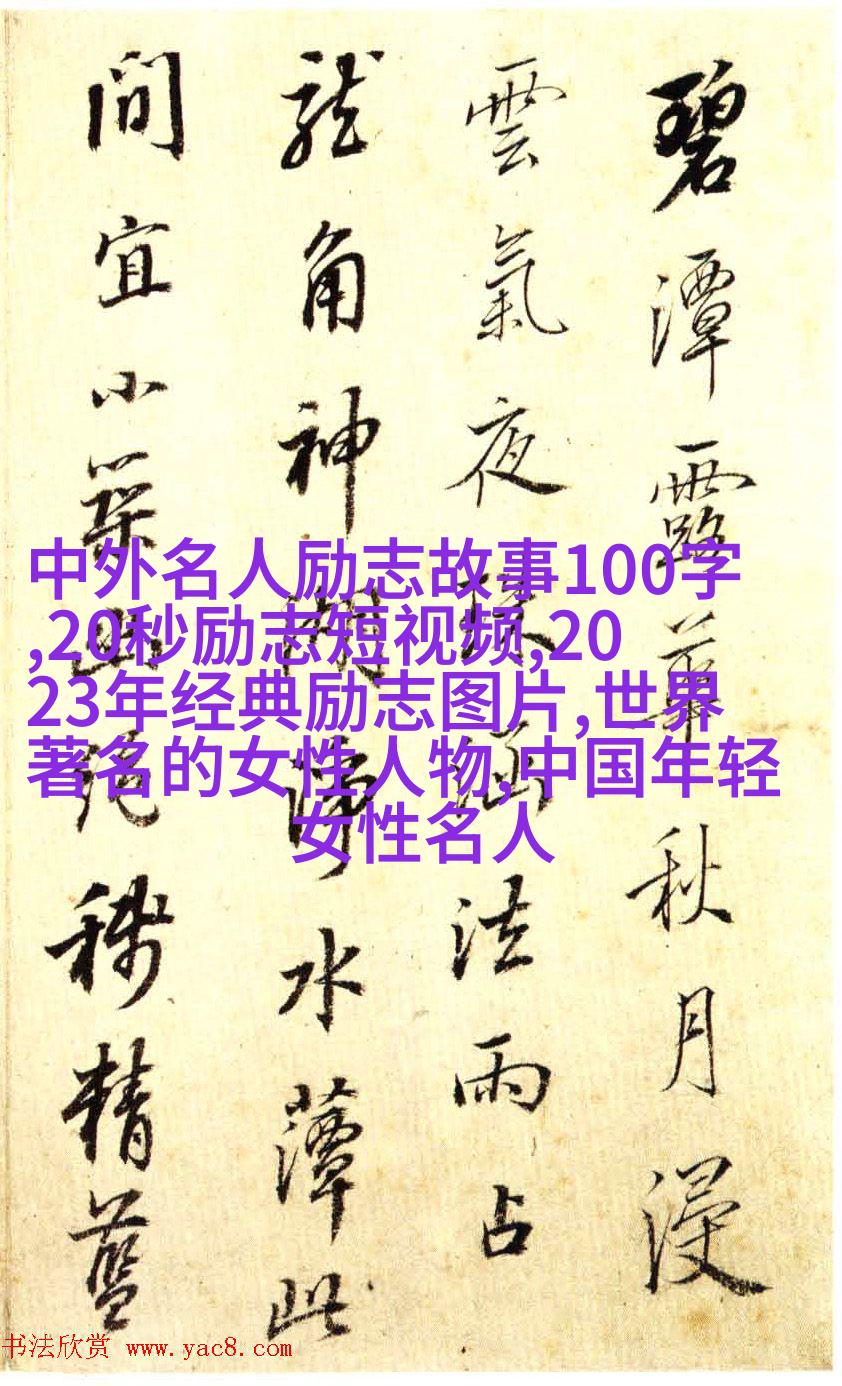 碧潭露華秋月浸
雲氣夜涵法雨占
龍角神湖淨水藫此
間宜小築此絕精藍
中外名人励志故事100字
,20秒励志短视频,20
23年经典励志图片,世界
著名的女性人物,中国年轻
女性名人
书法欣赏 www.yac8.com